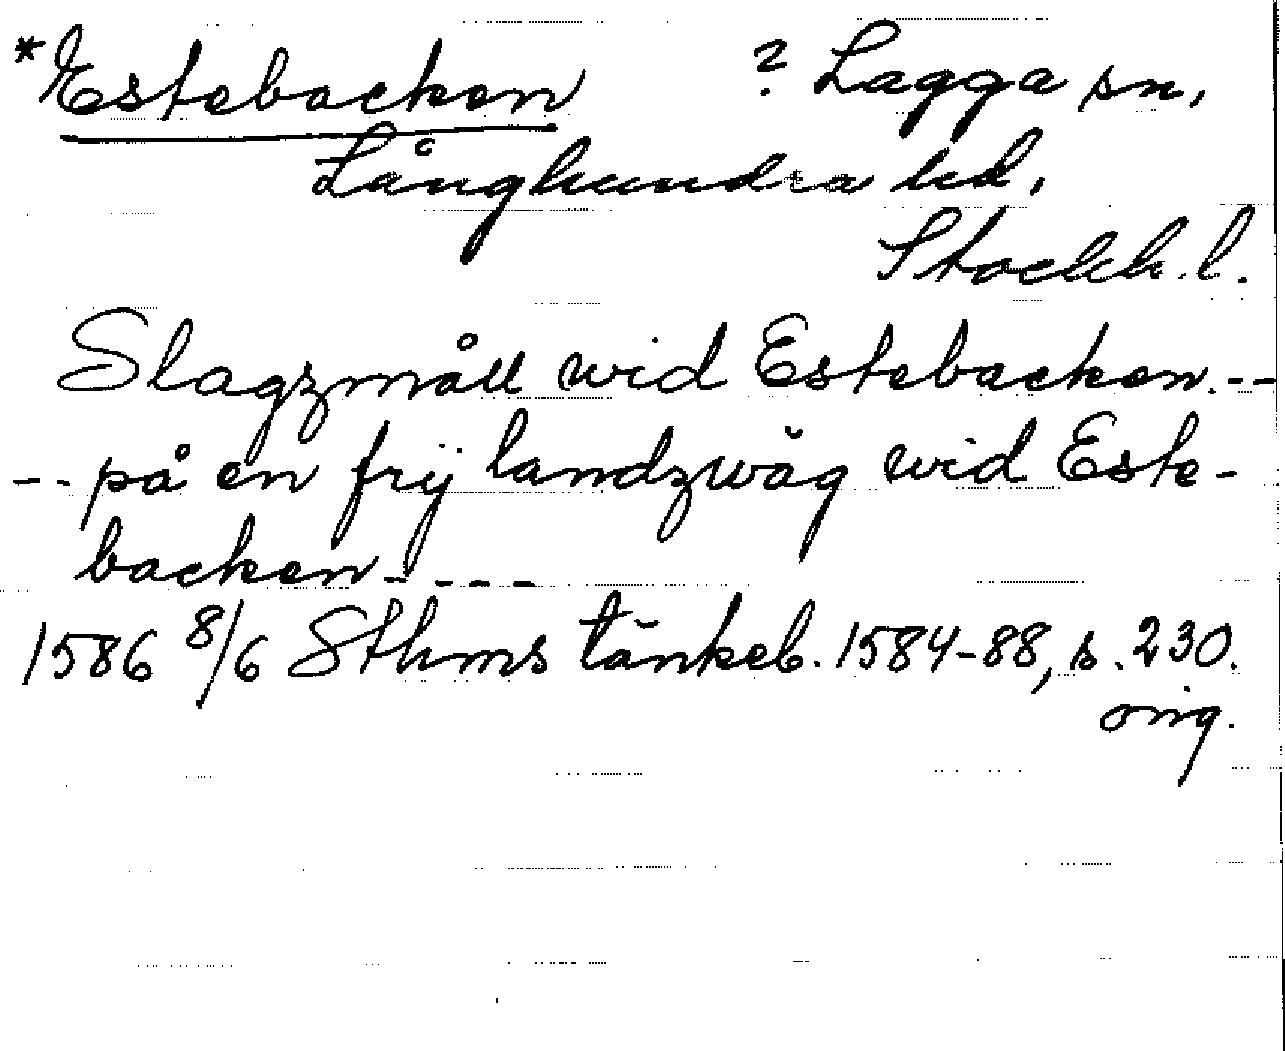 *Estebacken ? Lagga sn,
Långhundra hd,
Stockh. l.
Slagzmåll wid Estebacken.--
-- på en frij landzwäg wid Este-
backen----
1586 8/6 Sthms tänkeb. 1584-88, s. 230.
orig.